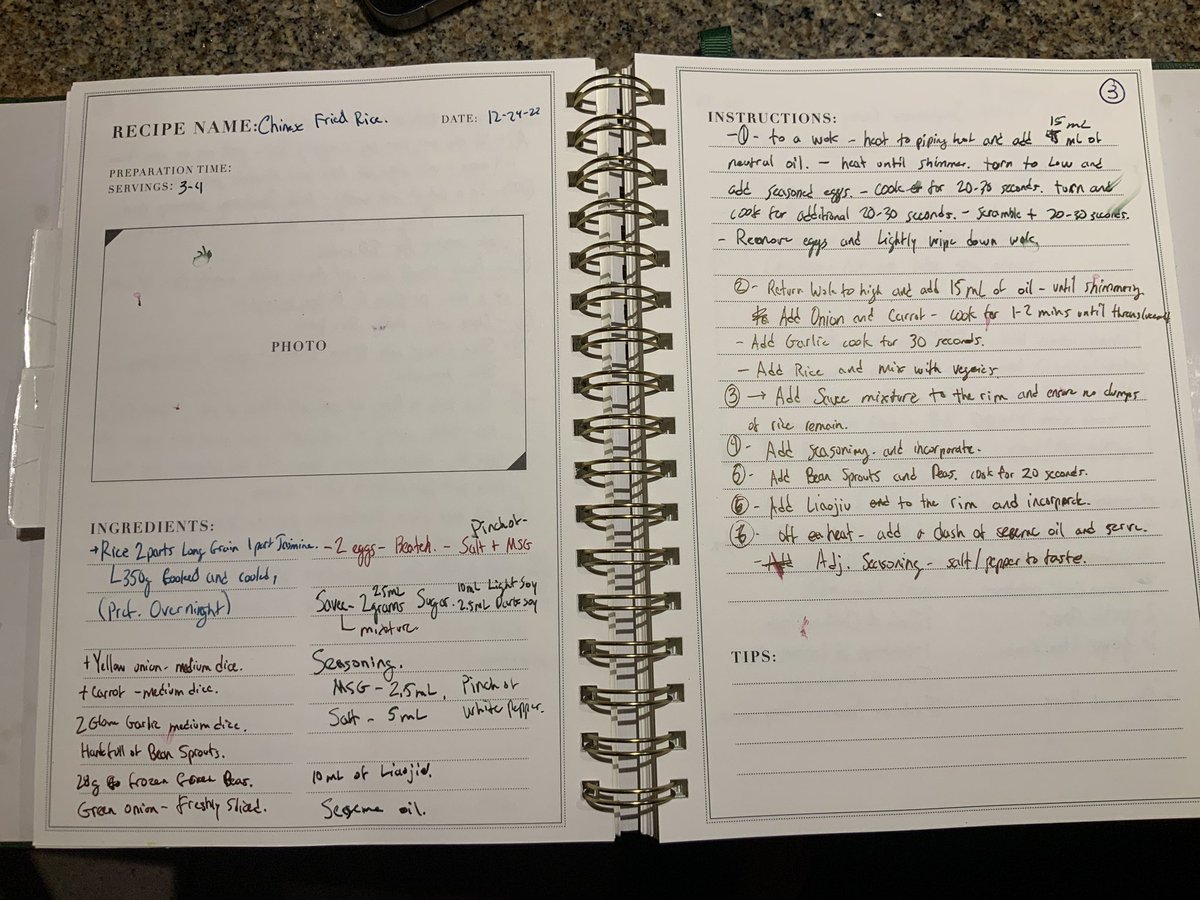 RECIPE NAME: Chinese Fried Rice. DATE: 12-24-22
PREPARATION TIME:
SERVINGS: 3-4
PHOTO
INGREDIENTS:
→ Rice 2 parts Long Grain 1 part Jasmine.
350g Cooked and cooled,
(Pref. Overnight)
+ Yellow onion - medium dice.
+ Carrot - medium dice.
2 Clove Garlic medium dice.
Handfull of Bean Sprouts.
28g frozen Green Peas.
Green onion - Freshly Sliced.
Pinch of
- 2 eggs - Beaten. - Salt + MSG
2.5mL 10mL Light Soy
Sauce - 2grams Sugar. 2.5mL Dark Soy
mixture.
Seasoning.
MSG - 2.5mL, Pinch of
Salt - 5mL White Pepper.
10mL of Liaojiu.
Seseme oil.
3
INSTRUCTIONS:
15 mL
- 1 - to a wok - heat to piping hot and add mL of
neutral oil. - heat until shimmer. turn to Low and
add seasoned eggs. - Cook for 20-30 seconds. turn and
cook for additional 20-30 seconds. - scramble + 20-30 seconds.
- Remove eggs and Lightly wipe down wok.
2 - Return Wok to high and add 15mL of oil - until shimmering
Add Onion and Carrot - cook for 1-2 mins until
- Add Garlic cook for 30 seconds.
- Add Rice and mix with veggies
3 → Add Sauce mixture to the rim and ensure no clumps
of rice remain.
4 - Add Seasoning. and incorporate.
5 - Add Bean Sprouts and Peas. cook for 20 seconds.
6 - Add Liaojiu to the rim and incorporate.
7 - off heat - add a dash of seseme oil and serve.
- Adj. Seasoning - salt/pepper to taste.
TIPS: